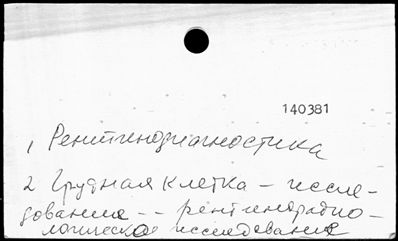 140381
1, Рентгенодиагностика
2 Грудная клетка - иссле-
дование -- рентгенорадио-
логическое исследование